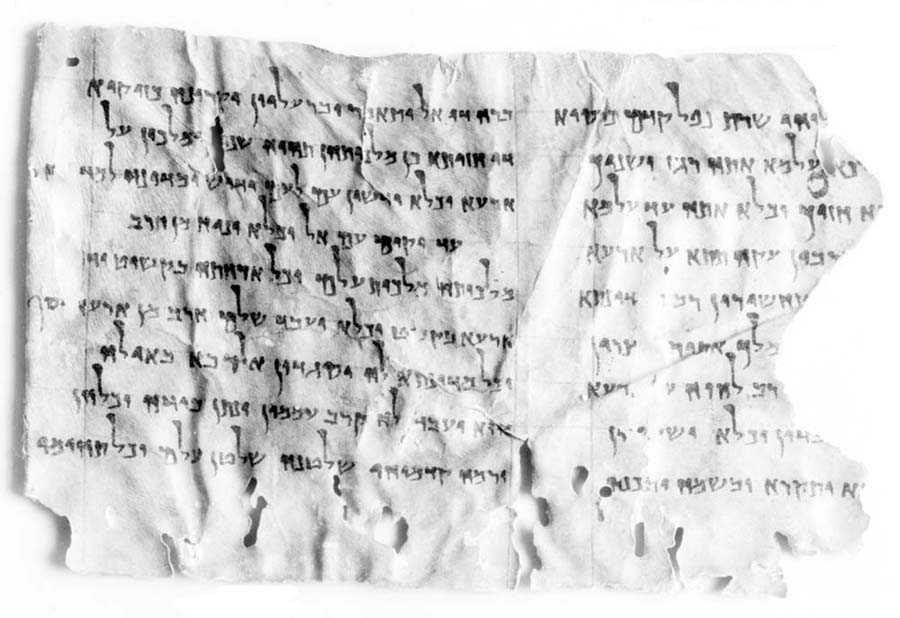 שרת נפל קדם כרסיא
עלמא אתה רגז ושניך
חזוך וכלא אתה עד עלמא
עקה תתא על ארעא
מדינתא
מלך אתור
רב להוה
וכלא
יתקרא ובשמה יתכנה
ברה די אל יתאמר ובר עליון יקרונה כזיקיא
די חזותא כן מלכותהן תהוה ימלכון על
ארעא וכלא ידשון עם לעם ידוש ומדינה
עד יקום עם אל וכלא יניח מן חרב
מלכותה מלכות עלם וכל ארחתה בקשוט
ארעא בקשט וכלא יעבד שלם חרב מן ארעא יסף
וכל מדינתא לה יסגדון אל רבא באילה
הוא יעבד לה קרב עממין ינתן בידה וכלהן
ירמה קדמוהי שלטנה שלטן עלם וכל תהומי